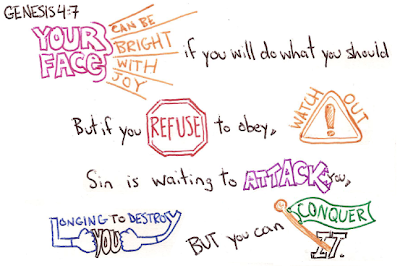 GENESIS 4:7
YOUR FACE CAN BE BRIGHT WITH JOY if you will do what you should
But if you REFUSE to obey, WATCH OUT !
Sin is waiting to ATTACK you,
LONGING TO DESTROY YOU BUT you can CONQUER IT.